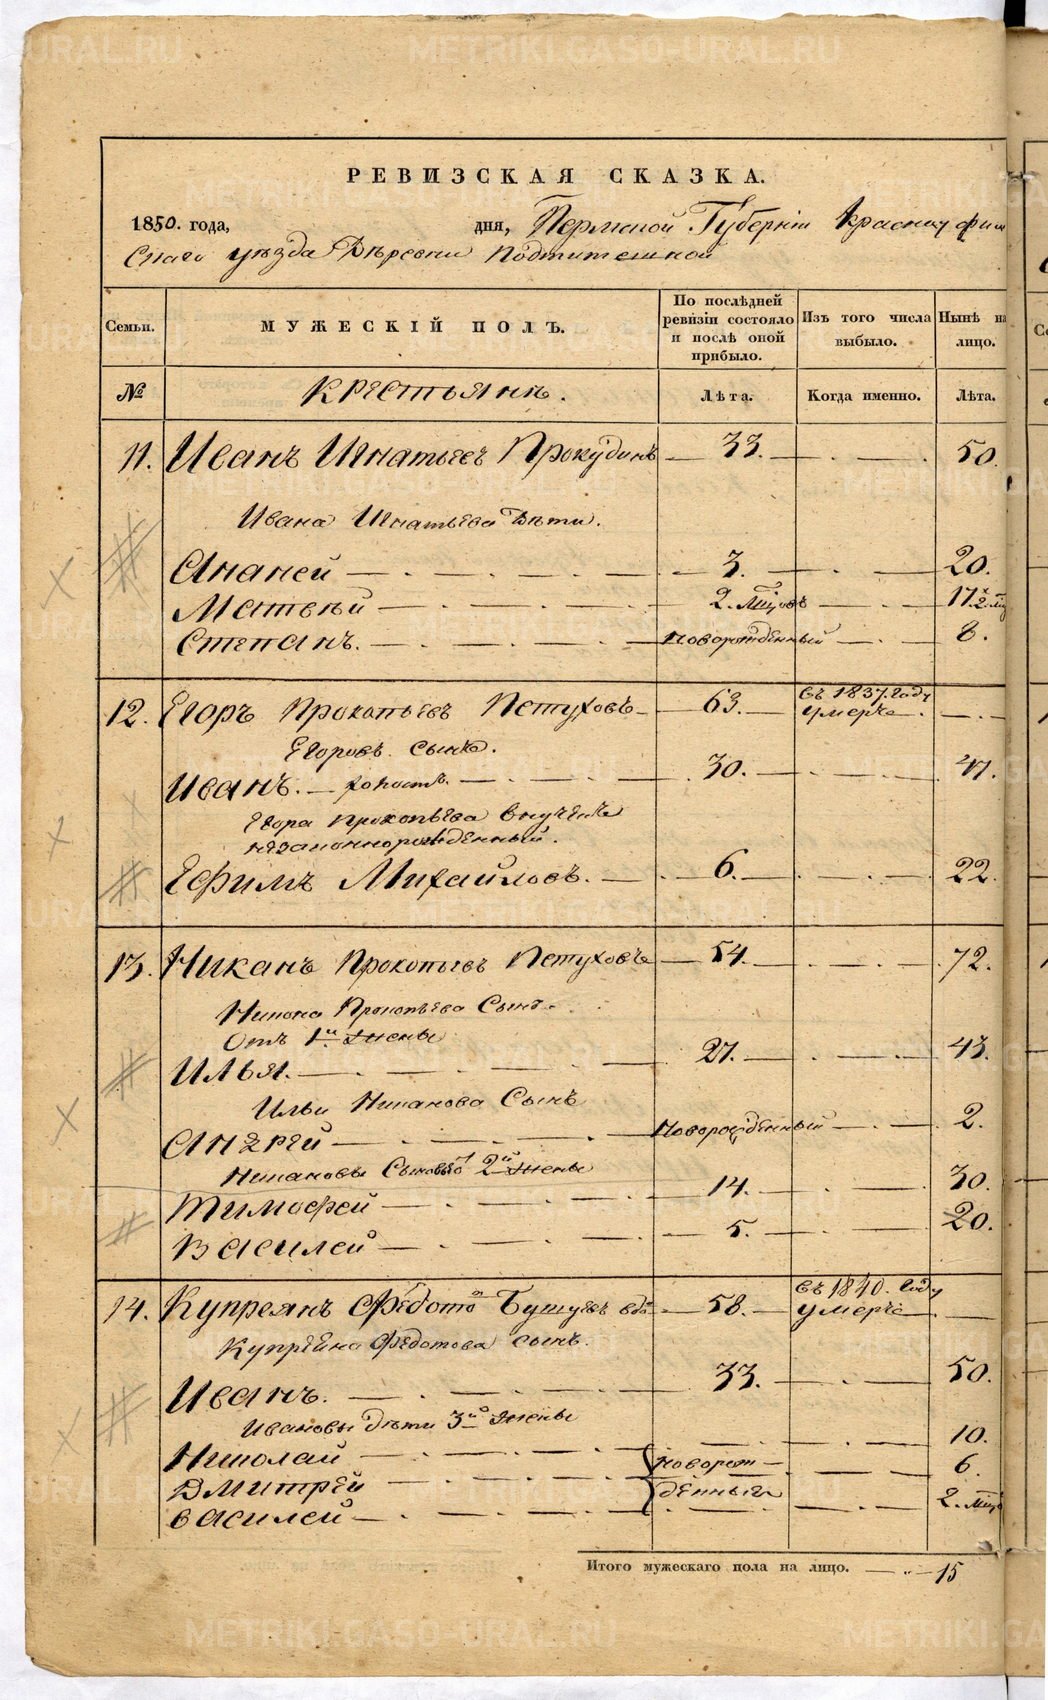 РЕВИЗСКАЯ СКАЗКА.
1850. года, дня, Пермской Губерніи Красноуфим
скаго уѣзда Дѣревни Подтитешной
Семьи. МУЖЕСКІЙ ПОЛЪ. По послѣдней ревизіи состояло и послѣ оной прибыло. Изъ того числа выбыло. Нынѣ на лицо.
№ Крестьянѣ. Лѣта. Когда именно. Лѣта.
11. Иванъ Игнатьевъ Прокудинъ 33. 50.
Ивана Игнатьева Дѣти.
Ананей 3. 20.
Матвѣй 2. Мцовъ 17. 2. мц
Степанъ. Новорожденный 8.
12. Егоръ Прокопьевъ Петуховъ 63. въ 1837. году умеръ.
Егоровъ сынъ.
Иванъ. холостъ. 30. 47.
Егора Прокопьева внучекъ
незаконнорожденный.
Ефимъ Михайловъ. 6. 22.
13. Никанъ Прокопьевъ Петуховъ 54. 72.
Никона Прокопьева Сынъ
Отъ 1й жены
Илья. 27. 43.
Ильи Никанова Сынъ
Андрей Новорожденный 2.
Никановы Сыновья 2й жены
Тимофей 14. 30.
Василей 5. 20.
14. Купреянъ Федотовъ 58. въ 1840. году умеръ
Купреяна Федотова сынъ.
Иванъ. 33. 50.
Ивановы дѣти 3й жены
Николай 10.
Дмитрей Новорож- 6.
Василей денные 2. мцо
Итого мужескаго пола на лицо. 15
METRIKI.GASO-URAL.RU